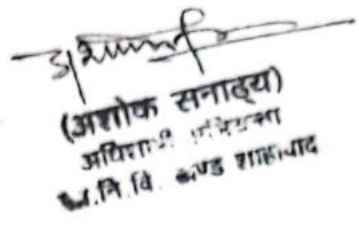 (अशोक सनाढ्य)
अधिशाषी अभियन्ता
नि.वि. खण्ड शाहाबाद